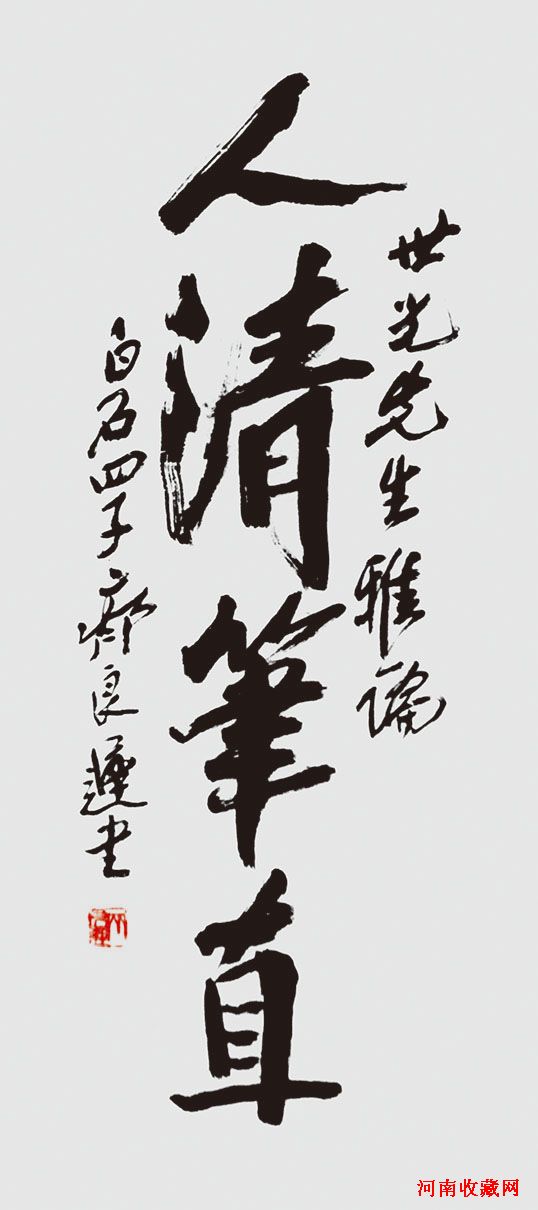 世光先生雅論
人清筆直
白石四子齊良遲書
河南收藏网